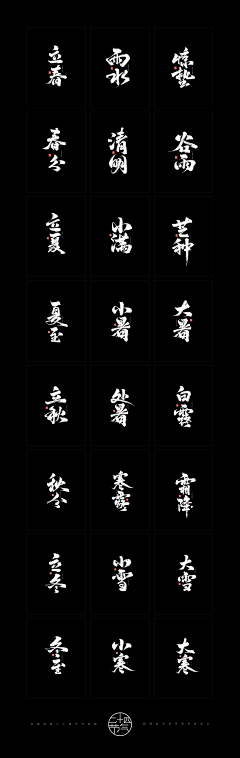 立春
雨水
惊蛰
春分
清明
谷雨
立夏
小满
芒种
夏至
小暑
大暑
立秋
处暑
白露
秋分
寒露
霜降
立冬
小雪
大雪
冬至
小寒
大寒
二十四
节气